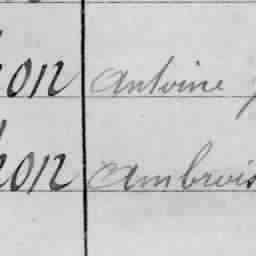 on Antoine
on Ambrois